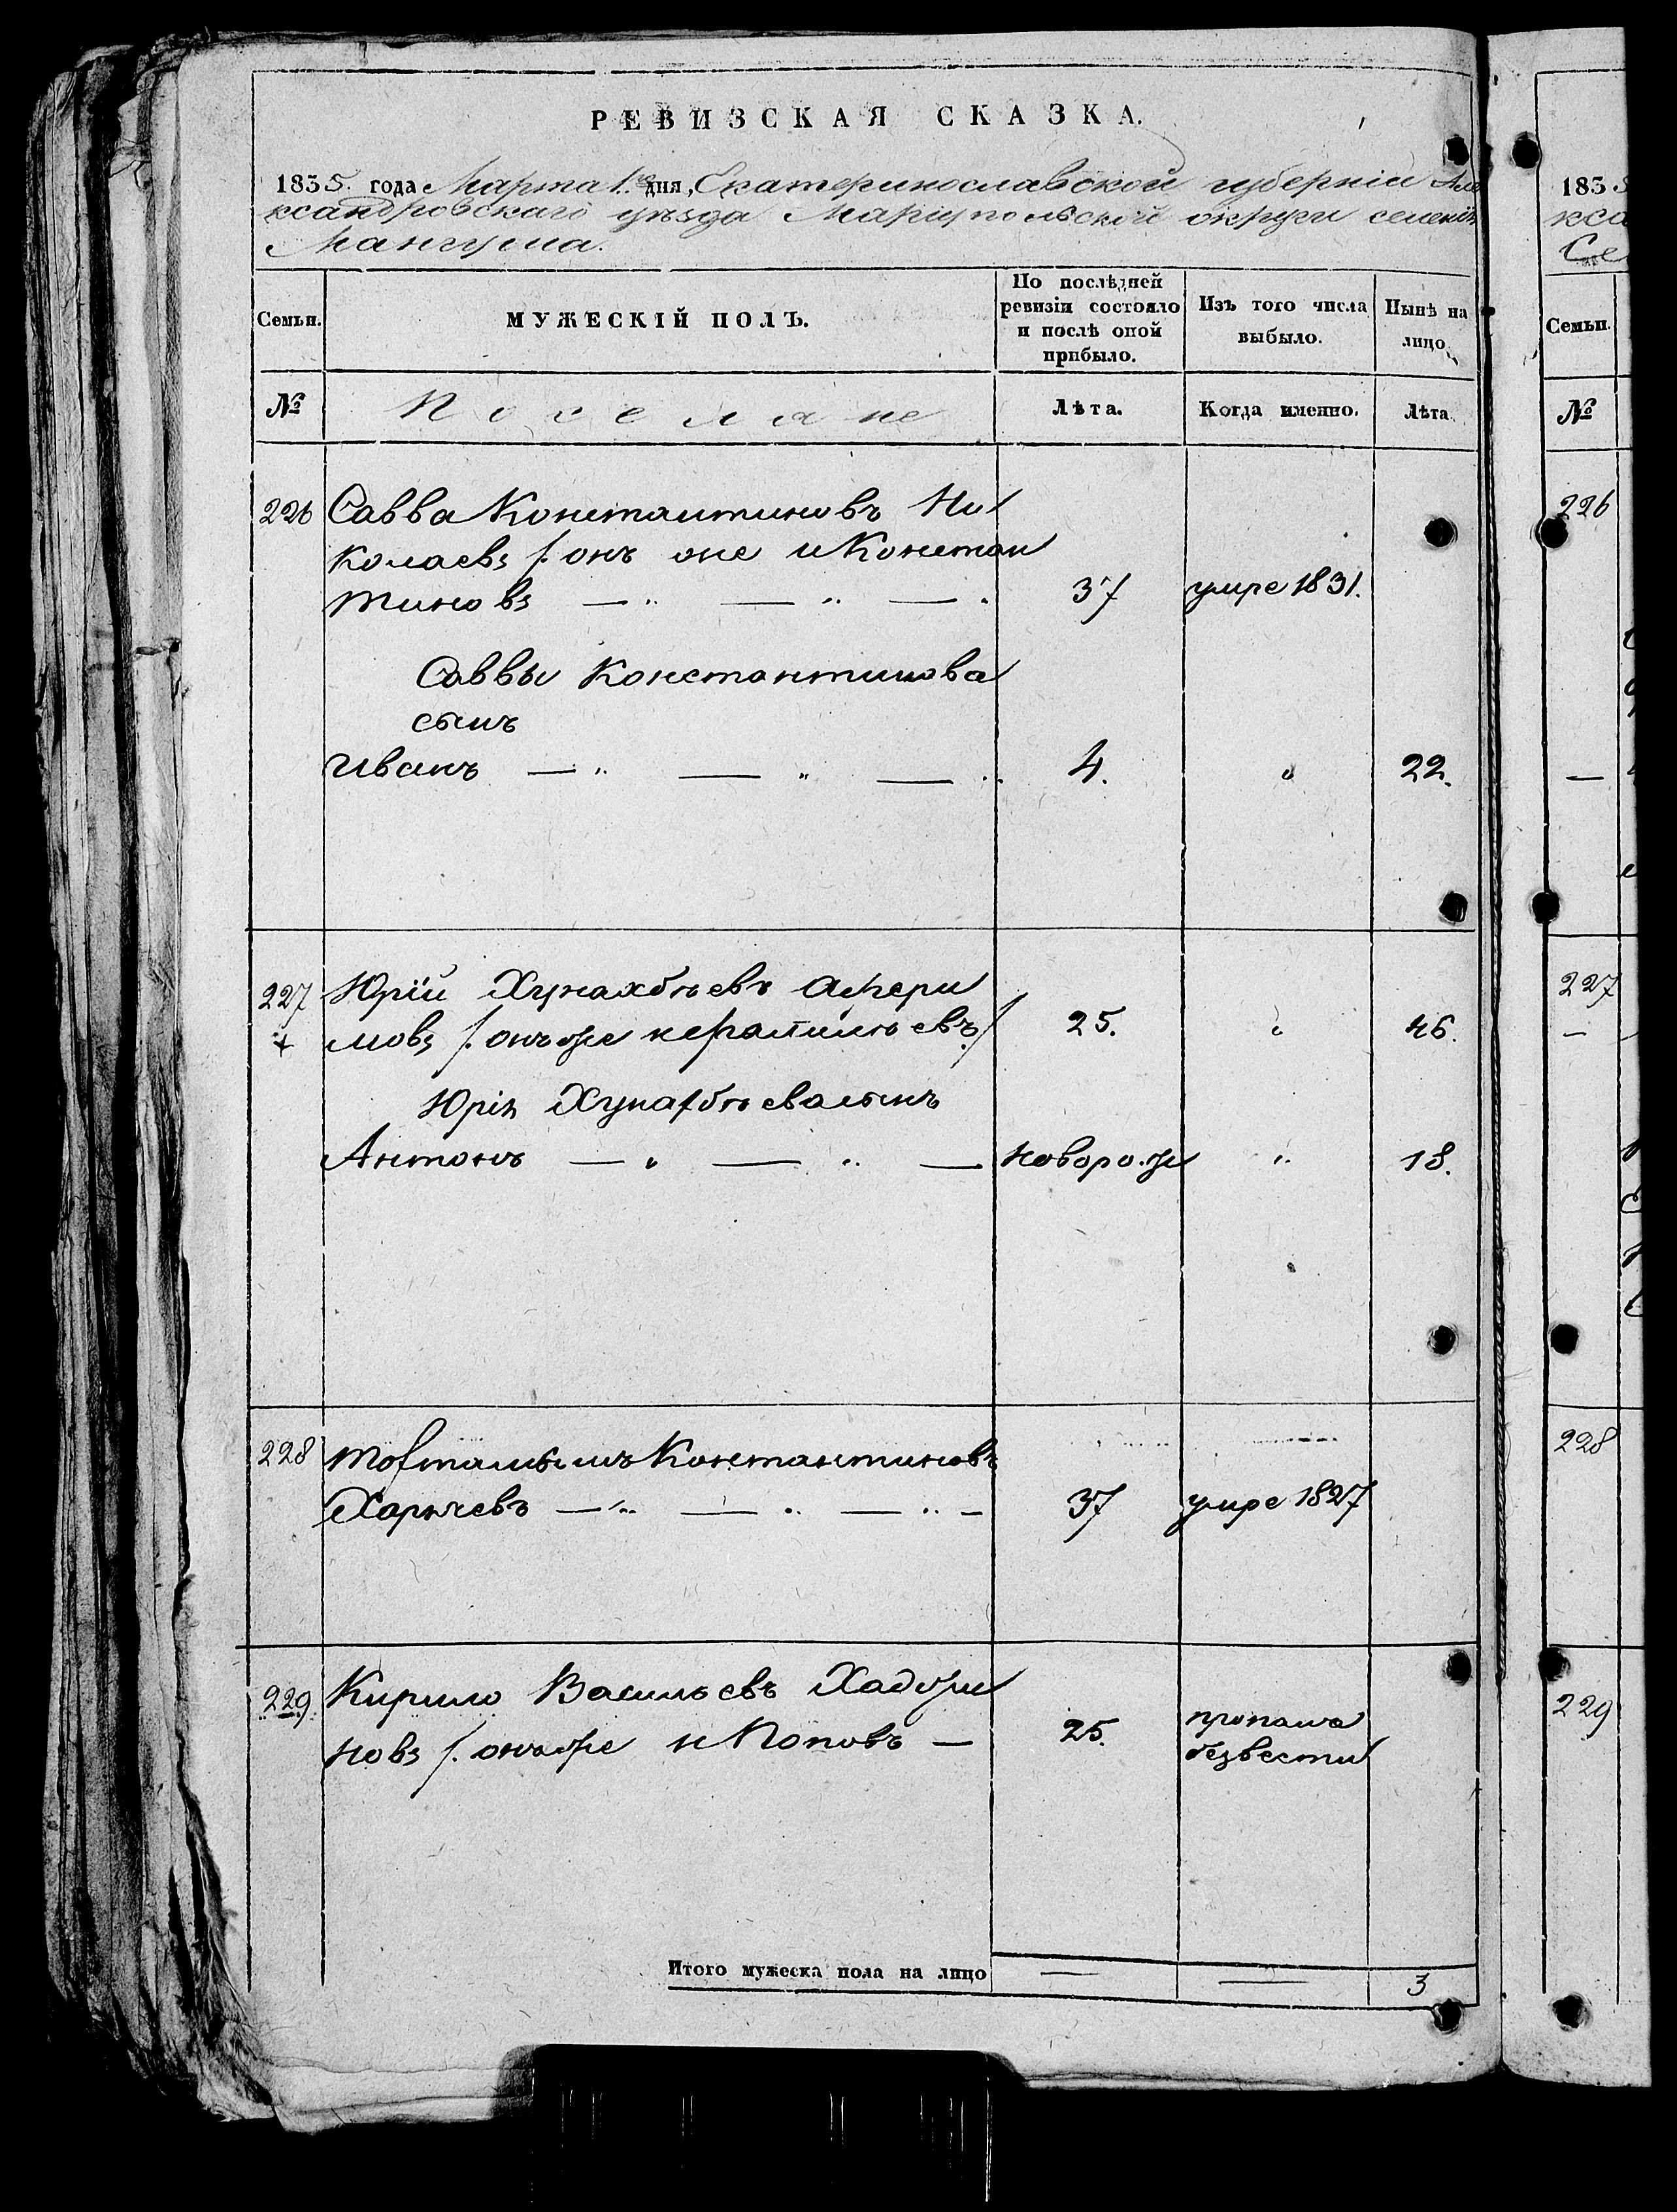 РЕВИЗСКАЯ СКАЗКА.
1835. года Марта 1го дня, Екатеринославской губерніи Але
ксандровскаго уѣзда Маріупольской округи селенія
Мангуша.
Семьи.
МУЖЕСКІЙ ПОЛЪ.
По послѣдней
ревизіи состояло
и послѣ оной
прибыло.
Изъ того числа
выбыло.
Нынѣ на
лицо
№
Поселяне
Лѣта.
Когда именно.
Лѣта
226 Савва Константиновъ Ни
колаевъ /. онъ же и Констан
тиновъ 37 умре 1831.
Саввы Константинова
сынъ
Иванъ 4. 22.
227 Юрій
мовъ /. онъ же 25. 46.
Юрія
Антонъ новорож 18.
228 Константиновъ
37 умре 1827
229 Кирило Васильевъ Хаджи
новъ /. онъ же и Поповъ — 25. пропалъ
безвести
Итого мужеска пола на лицо 3
183
кса
Се
Семьи.
№
226
227
228
229